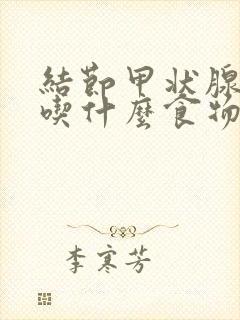 結節甲状腺
喫什麼食物
李寒芳